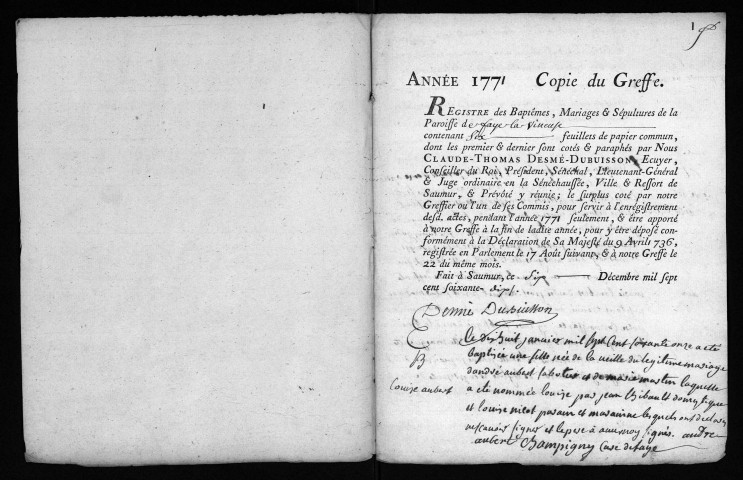 1
ANNÉE 1771 Copie du Greffe.
REGISTRE des Baptêmes, Mariages & Sépultures de la
Paroisse de faye la Vineuse
contenant six feuillets de papier commun,
dont les premier & dernier sont cotés & paraphés par Nous
CLAUDE-THOMAS DESMÉ-DUBUISSON, Ecuyer,
Conseiller du Roi, Président, Sénéchal, Lieutenant-Général
& Juge ordinaire en la Sénéchaussée, Ville & Ressort de
Saumur, & Prévôté y réunie; le surplus coté par notre
Greffier ou l'un de ses Commis, pour servir à l'enrégistrement
desd. actes, pendant l'année 1771 seulement, & être apporté
à notre Greffe à la fin de ladite année, pour y être déposé con-
formément à la Déclaration de Sa Majesté du 9 Avril 1736,
registrée en Parlement le 17 Août suivant, & à notre Greffe le
22 du même mois.
Fait à Saumur, ce Décembre mil sept
cent soixante-dix.
Desmé Dubuisson
B
Louise aubert
Le dixhuit janvier mil sept Cent soixante onze a eté
baptisée une fille née de la veille du legitime mariage
d'andré aubert sabotier et de marie martin laquelle
a eté nommée louise par jean thibault domestique
et louise nicot parain et maraine lesquels ont declaré
ne scavoir signer et le pere a avec moy signé. andre
aubert Champigny Curé de faye